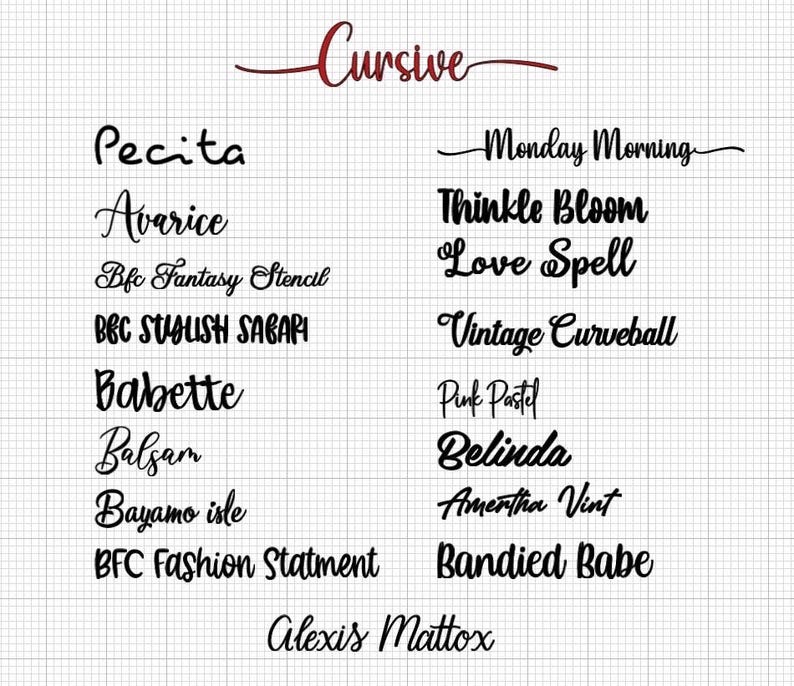 Cursive
Pecita
Avarice
Bfc Fantasy Stencil
BFC STYLISH SAFARI
Babette
Balsam
Bayamo isle
BFC Fashion Statment
Monday Morning
Thinkle Bloom
Love Spell
Vintage Curveball
Pink Pastel
Belinda
Amertha Vint
Bandied Babe
Alexis Mattox